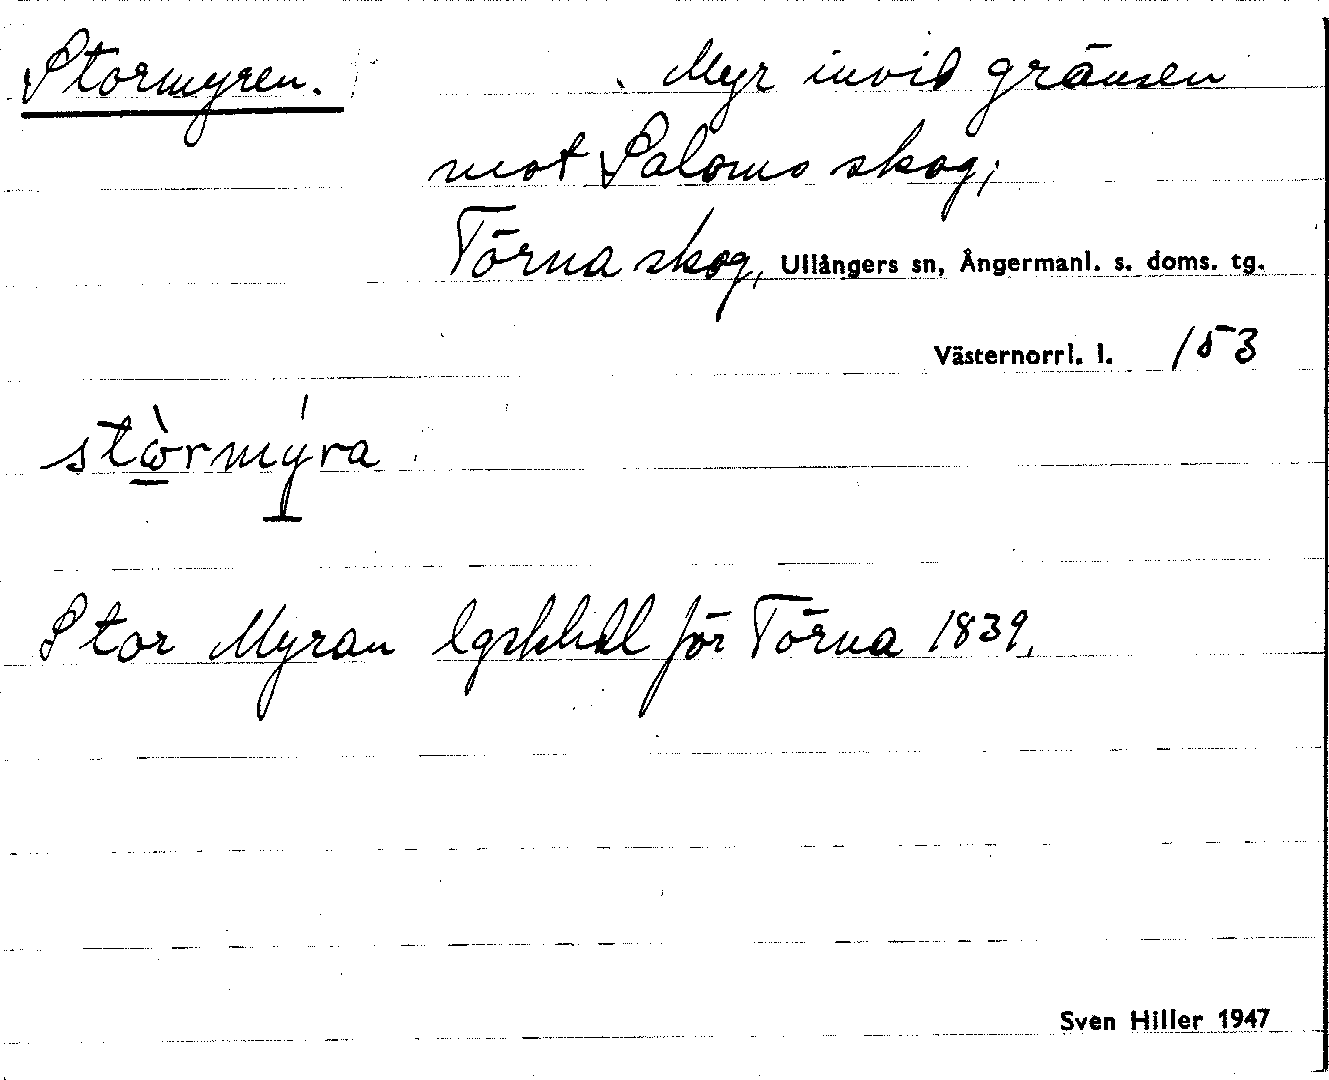 Stormyren. Myr invid gränsen
mot Salomo skog,
Törna skog, Ullångers sn, Ångermanl. s. doms. tg.
Västernorrl. l. 153
stὼrmýra
Stor Myran lgskhdl för Törna 1839.
Sven Hiller 1947